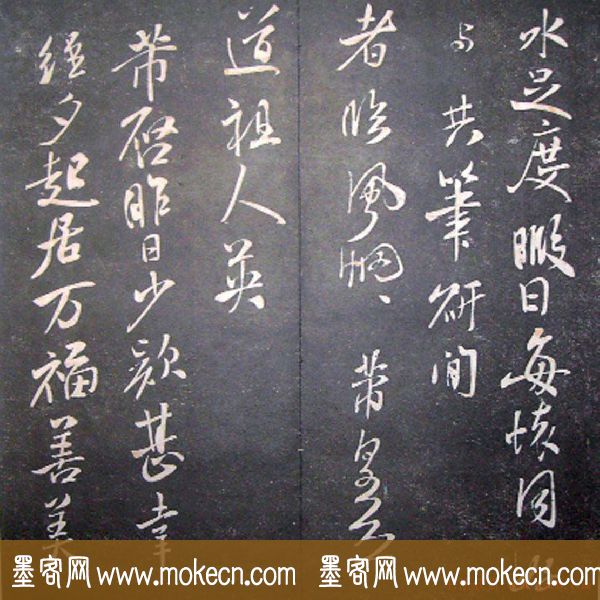 水足度暇日每懷同
与共筆研間
者臨風惘、芾皇恐
道祖人英
芾啓昨日少款甚幸
經夕起居万福善
墨客网 www.mokecn.com 墨客网 www.mokecn.com